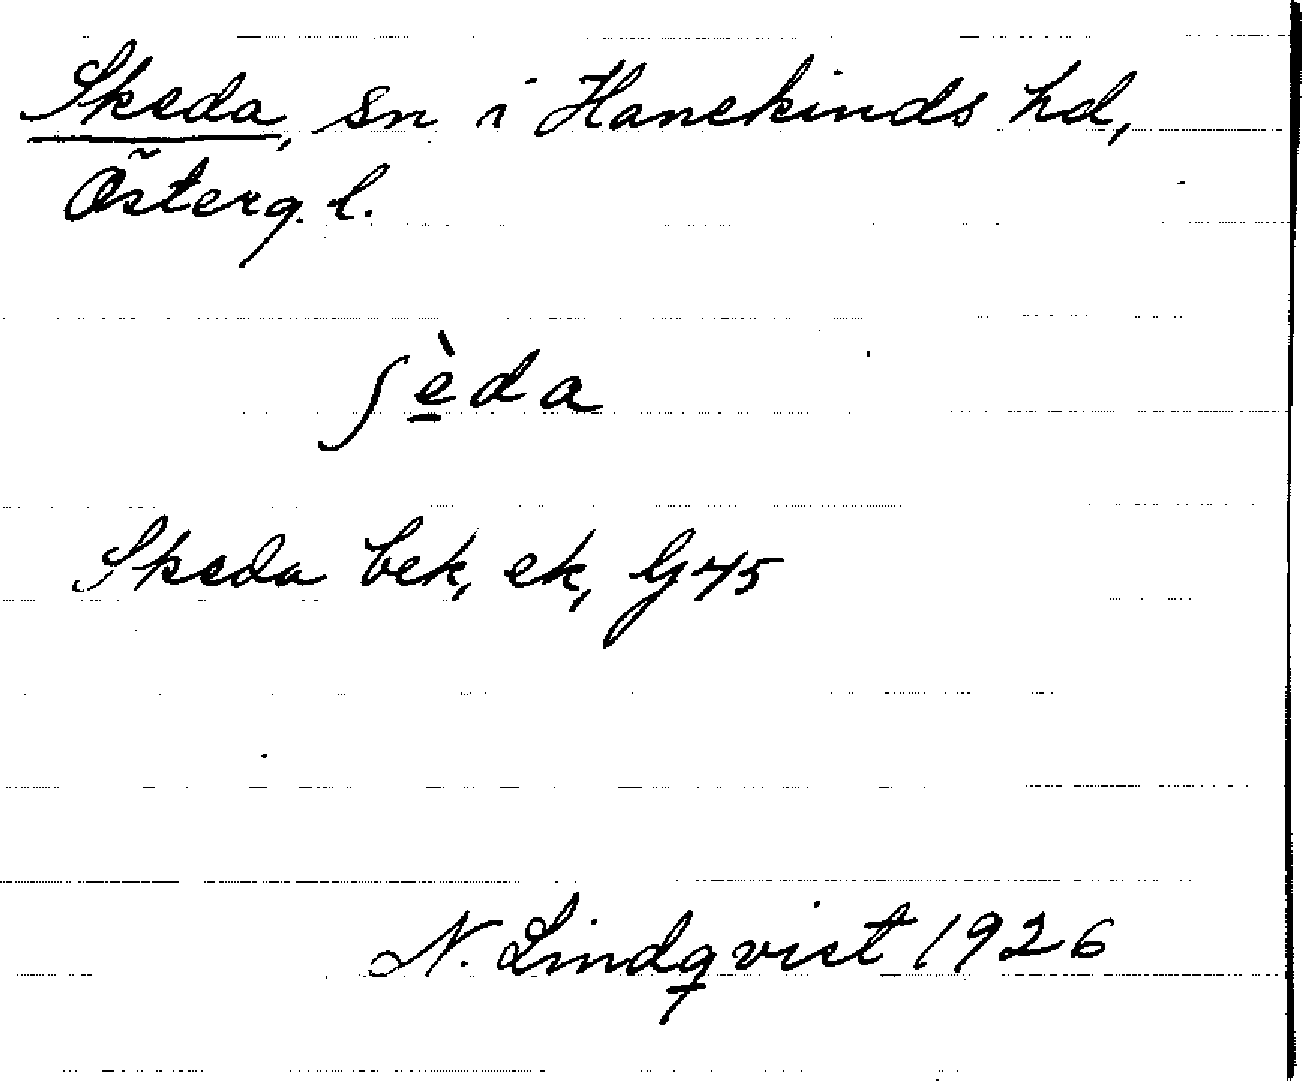 Skeda, sn i Hanekinds hd,
Österg. l.
ʃèda
Skeda bek, ek, G 45
N. Lindqvist 1926